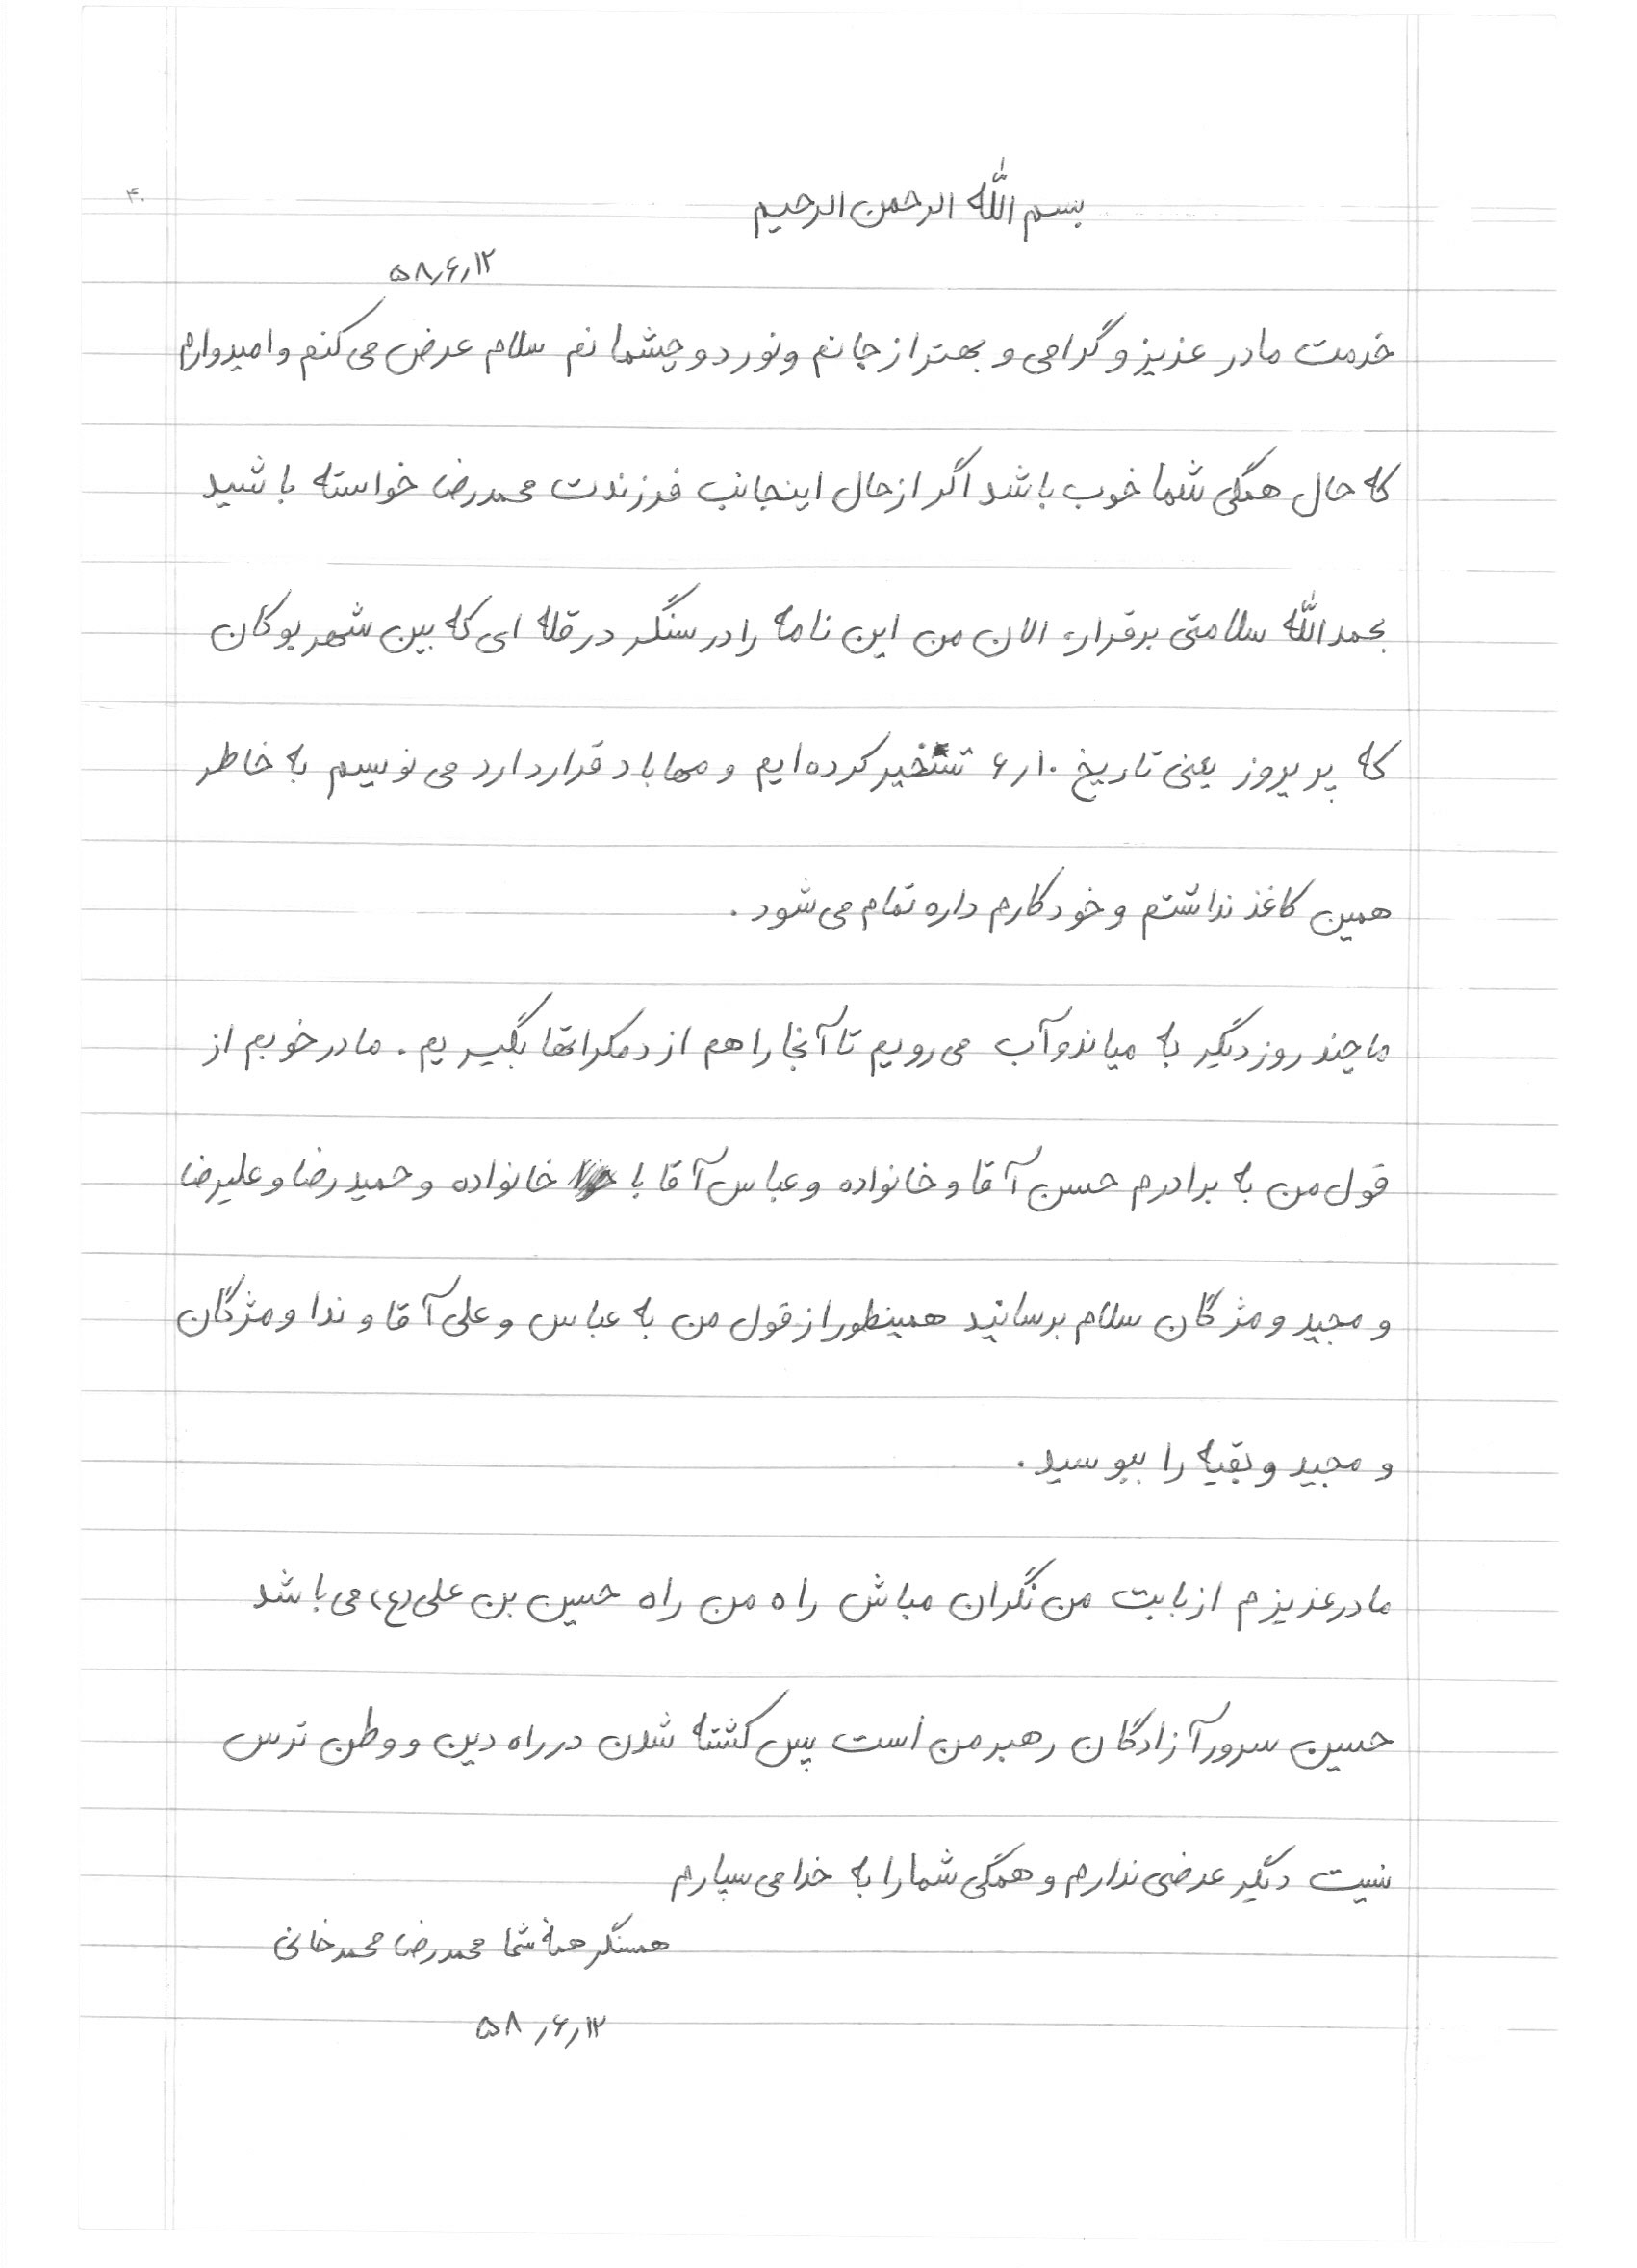 ۴۰
بسم اللّه الرحمن الرحیم
۵۸٫۶٫۱۲
خدمت مادر عزیز و گرامی و بهتر از جانم و نور دو چشمانم سلام عرض می کنم و امیدوارم
که حال همگی شما خوب باشد اگر از حال اینجانب فرزندت محمدرضا خواسته باشید
بحمداللّه سلامتی برقرار، الان من این نامه را در سنگر در قله ای که بین شهر بوکان
که پریروز یعنی تاریخ ۶٫۱۰ تسخیر کرده ایم و مهاباد قرار دارد می نویسم به خاطر
همین کاغذ نداشتم و خودکارم داره تمام می شود.
ما چند روز دیگر به میاندوآب می رویم تا آنجا را هم از دمکراتها بگیریم. مادر خوبم از
قول من به برادرم حسن آقا و خانواده و عباس آقا با خانواده و حمیدرضا و علیرضا
و مجید و مژگان سلام برسانید همینطور از قول من به عباس و علی آقا و ندا و مژگان
و مجید و بقیه را ببوسید.
مادر عزیزم از بابت من نگران مباش راه من راه حسین بن علی (ع) می باشد
حسین سرور آزادگان رهبر من است پس کشته شدن در راه دین و وطن ترس
نیست دیگر عرضی ندارم و همگی شما را به خدا می سپارم
همسنگر همه شما محمدرضا محمدخانی
۵۸٫۶٫۱۲